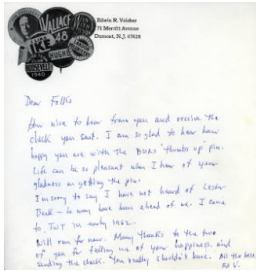 WALLACE
48
ROOSEVELT
1940
Edwin R. Volcker
71 Merritt Avenue
Dumont, N.J. 07628
Dear Folks
How nice to hear from you and receive the
check you sent. I am so glad to hear how
happy you are with the BURS "thumbs up" pin.
Life can be so pleasant when I hear of your
gladness on getting the pin.
I'm sorry to say I have not heard of Lester
Deck – he may have been ahead of me. I came
to in early 1962.
Will run for now. Many thanks to the two
of you for telling me of your happiness and
sending the check. You really shouldn't have. All the best
Ed V.